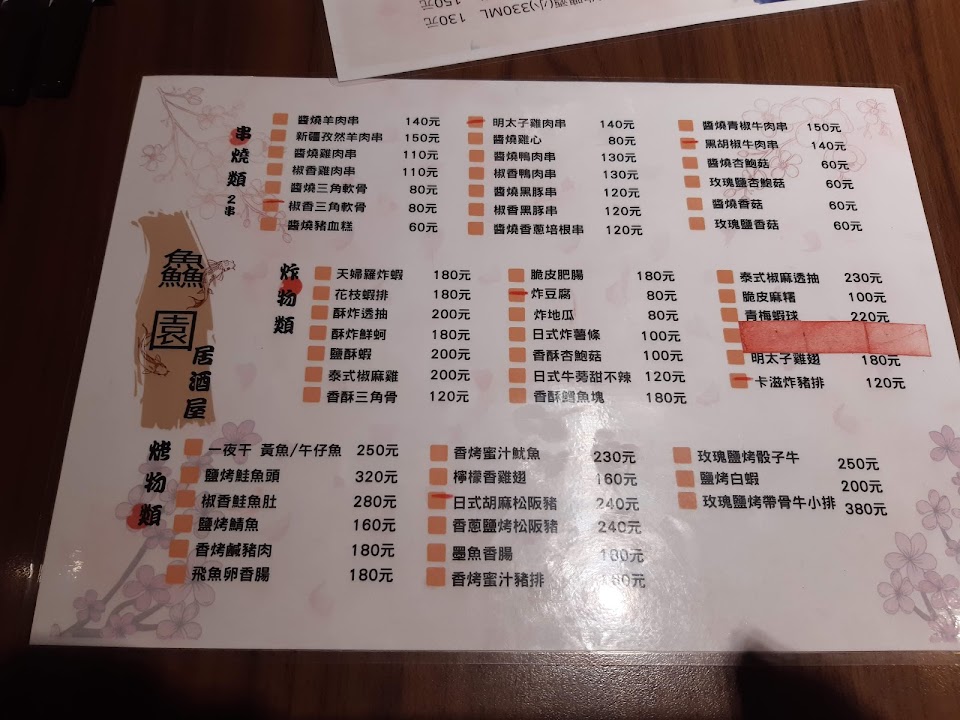 130元
150元
330ML
串燒類 2串
醬燒羊肉串 140元
新疆孜然羊肉串 150元
醬燒雞肉串 110元
椒香雞肉串 110元
醬燒三角軟骨 80元
椒香三角軟骨 80元
醬燒豬血糕 60元
明太子雞肉串 140元
醬燒雞心 80元
醬燒鴨肉串 130元
椒香鴨肉串 130元
醬燒黑豚串 120元
椒香黑豚串 120元
醬燒香蔥培根串 120元
醬燒青椒牛肉串 150元
黑胡椒牛肉串 140元
醬燒杏鮑菇 60元
玫瑰鹽杏鮑菇 60元
醬燒香菇 60元
玫瑰鹽香菇 60元
鱻園居酒屋
炸物類
天婦羅炸蝦 180元
花枝蝦排 180元
酥炸透抽 200元
酥炸鮮蚵 180元
鹽酥蝦 200元
泰式椒麻雞 200元
香酥三角骨 120元
脆皮肥腸 180元
炸豆腐 80元
炸地瓜 80元
日式炸薯條 100元
香酥杏鮑菇 100元
日式牛蒡甜不辣 120元
香酥鱈魚塊 180元
泰式椒麻透抽 230元
脆皮麻糬 100元
青梅蝦球 220元
明太子雞翅 180元
卡滋炸豬排 120元
烤物類
一夜干 黃魚/午仔魚 250元
鹽烤鮭魚頭 320元
椒香鮭魚肚 280元
鹽烤鯖魚 160元
香烤鹹豬肉 180元
飛魚卵香腸 180元
香烤蜜汁魷魚 230元
檸檬香雞翅 160元
日式胡麻松阪豬 240元
香蔥鹽烤松阪豬 240元
墨魚香腸 180元
香烤蜜汁豬排
玫瑰鹽烤骰子牛 250元
鹽烤白蝦 200元
玫瑰鹽烤帶骨牛小排 380元